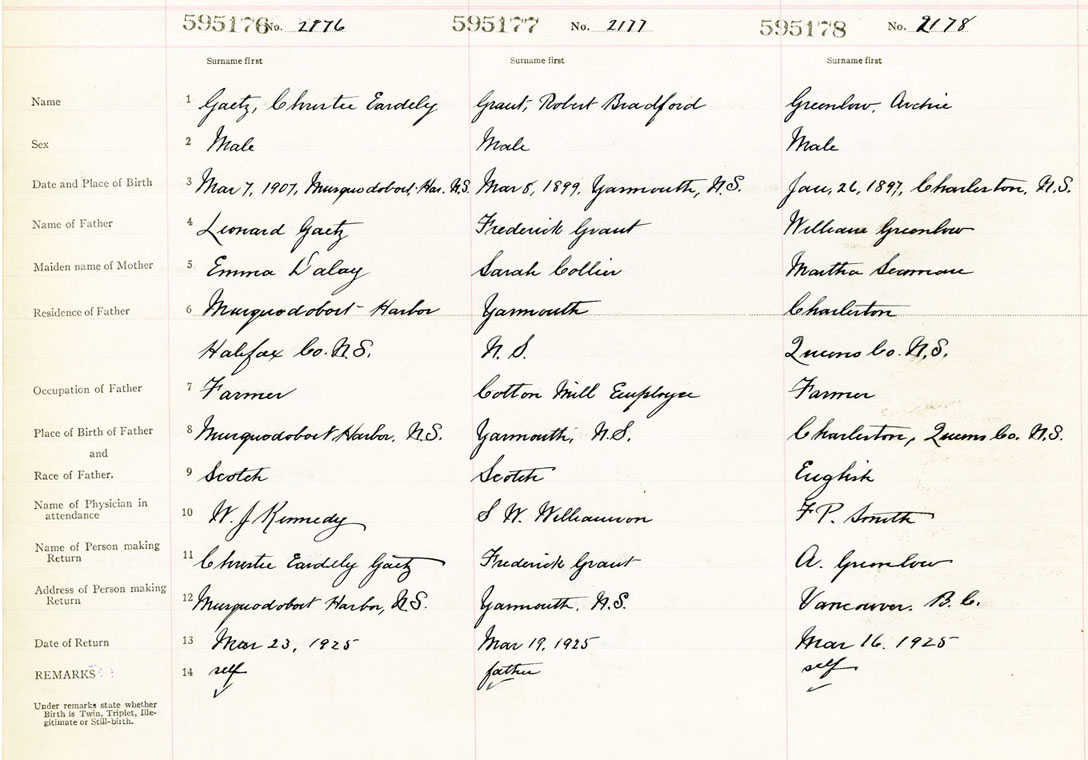 595176 No. 2176 595177 No. 2177 595178 No. 2178
Surname first Surname first Surname first
Name 1 Gaetz, Christie Eardely Grant, Robert Bradford Greenlow, Archie
Sex 2 Male Male Male
Date and Place of Birth 3 Mar 7, 1907, Musquodoboit Har. N.S. Mar 5, 1899, Yarmouth, N.S. Jan. 26, 1897, Charleston, N.S.
Name of Father 4 Leonard Gaetz Frederick Grant William Greenlow
Maiden name of Mother 5 Emma Sarah Collier Martha
Residence of Father 6 Musquodoboit Harbor Yarmouth Charleston
Halifax Co. N.S. N.S. Queens Co. N.S.
Occupation of Father 7 Farmer Cotton Mill Employee Farmer
Place of Birth of Father 8 Musquodoboit Harbor, N.S. Yarmouth, N.S. Charleston, Queens Co. N.S.
and
Race of Father. 9 Scotch Scotch English
Name of Physician in
attendance 10 W. J Kennedy S W. Williamson F P. Smith
Name of Person making
Return 11 Christie Eardely Gaetz Frederick Grant A. Greenlow
Address of Person making
Return 12 Musquodoboit Harbor, N.S. Yarmouth, N.S. Vancouver. B.C.
Date of Return 13 Mar 23, 1925 Mar 19, 1925 Mar 16. 1925
REMARKS 14 self father self
Under remarks state whether
Birth is Twin, Triplet, Ille-
gitimate or Still-birth.